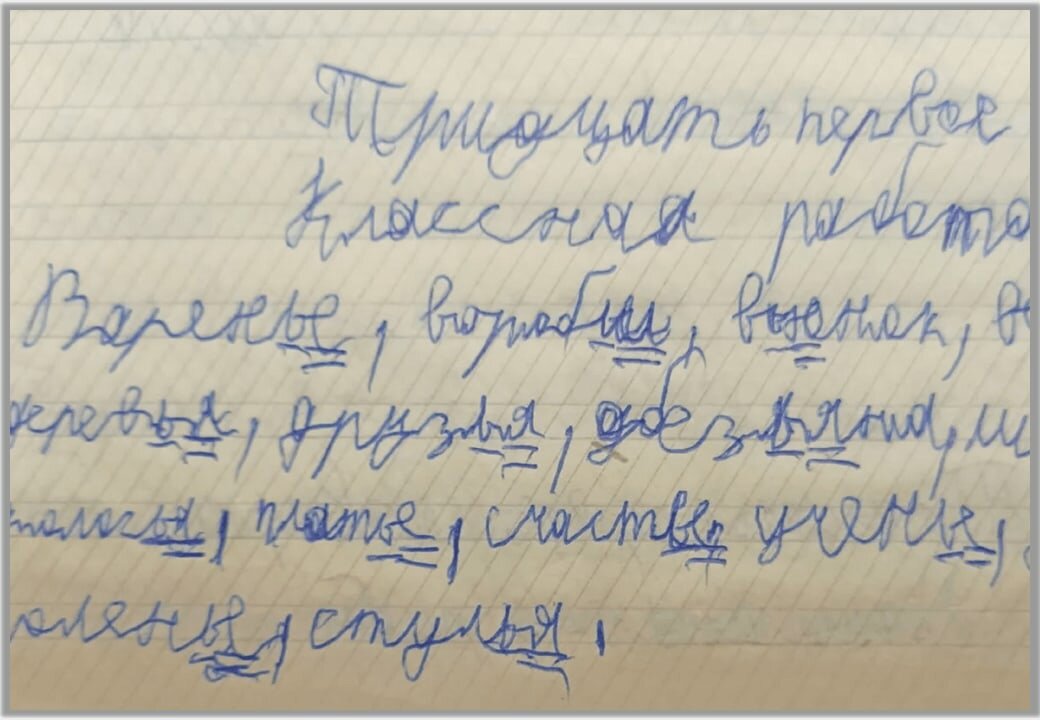 Тридцать первое
Классная работа
Варенье, воробьи, вьюнок,
деревья, друзья, обезьяна,
платье, счастье, ученье,
стулья,